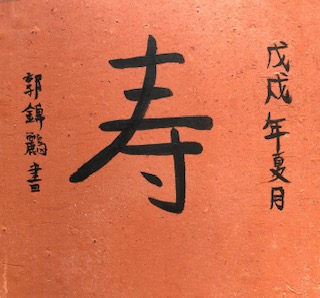 戊戌年夏月
寿
郭錦鸝書